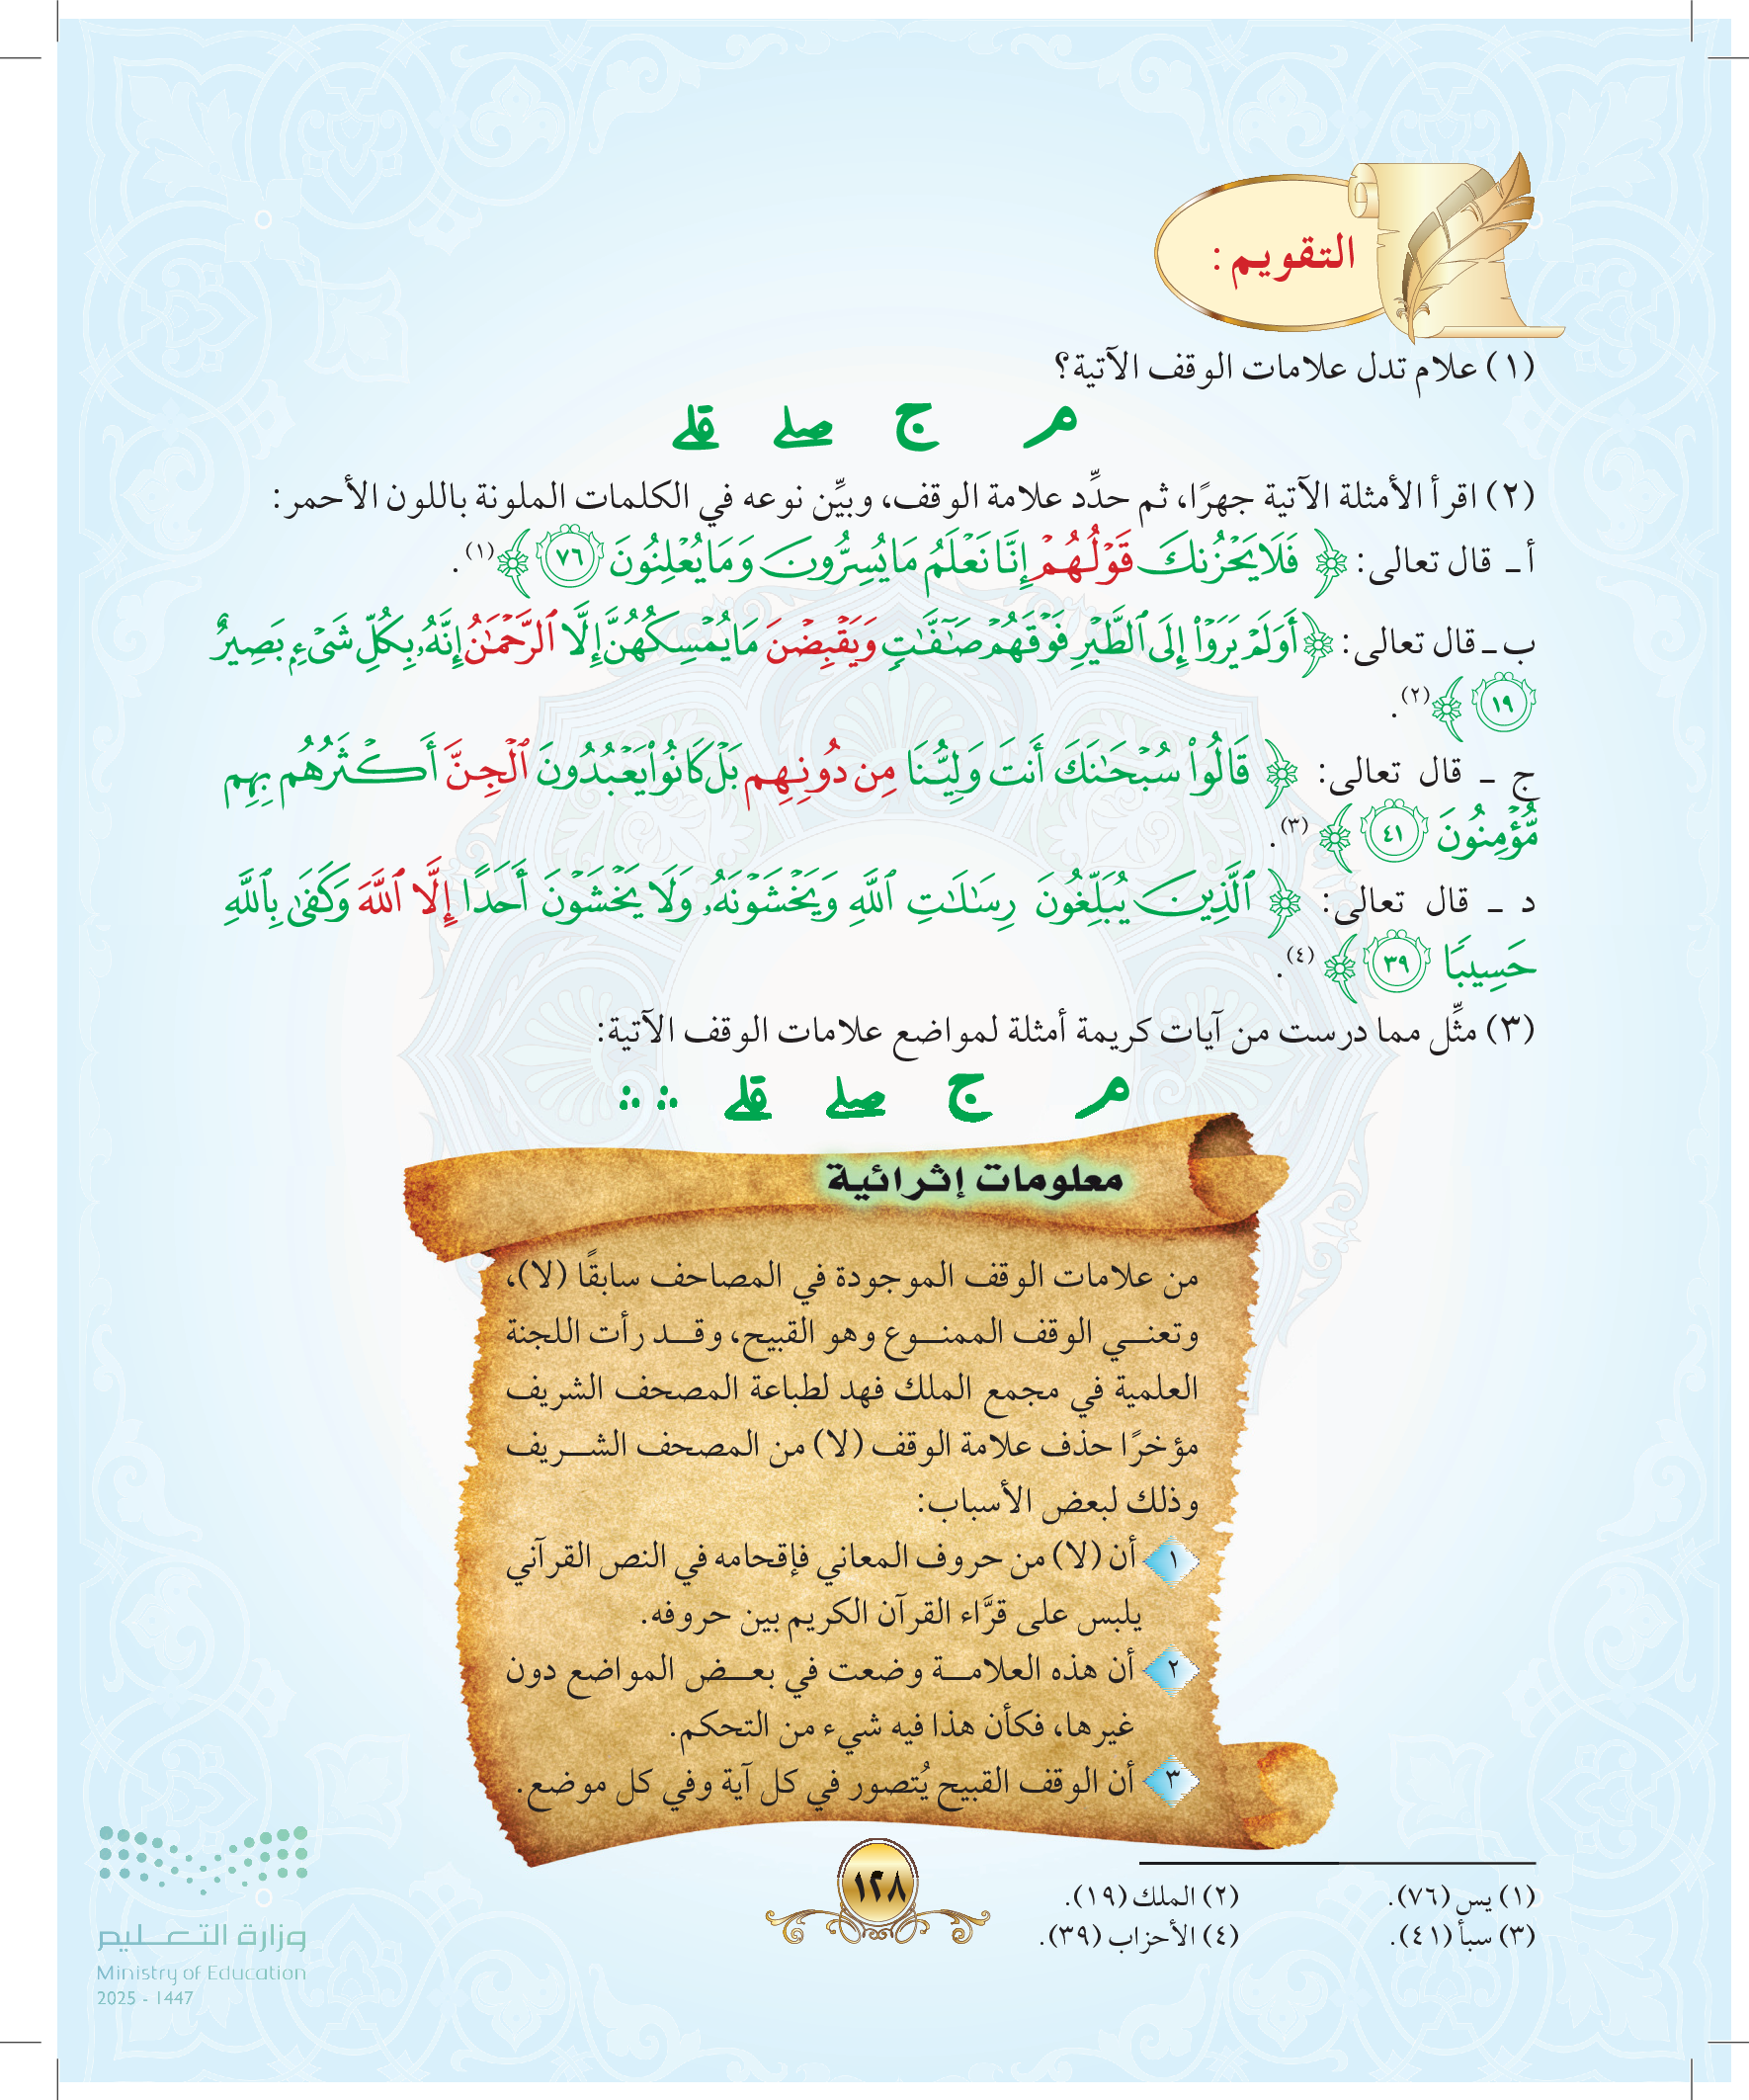 التقويم :
(١) علام تدل علامات الوقف الآتية؟
مـ ج صلے قلے
(٢) اقرأ الأمثلة الآتية جهرًا، ثم حدِّد علامة الوقف، وبيِّن نوعه في الكلمات الملونة باللون الأحمر:
أ ـ قال تعالى: ﴿ فَلَا يَحْزُنكَ قَوْلُهُمْ إِنَّا نَعْلَمُ مَا يُسِرُّونَ وَمَا يُعْلِنُونَ ٧٦ ﴾(١).
ب ـ قال تعالى: ﴿ أَوَلَمْ يَرَوْا۟ إِلَى ٱلطَّيْرِ فَوْقَهُمْ صَٰٓفَّٰتٍ وَيَقْبِضْنَ مَا يُمْسِكُهُنَّ إِلَّا ٱلرَّحْمَٰنُ إِنَّهُۥ بِكُلِّ شَىْءٍۭ بَصِيرٌ
١٩ ﴾(٢).
ج ـ قال تعالى: ﴿ قَالُوا۟ سُبْحَٰنَكَ أَنتَ وَلِيُّنَا مِن دُونِهِم بَلْ كَانُوا۟ يَعْبُدُونَ ٱلْجِنَّ أَكْثَرُهُم بِهِم
مُّؤْمِنُونَ ٤١ ﴾(٣).
د ـ قال تعالى: ﴿ ٱلَّذِينَ يُبَلِّغُونَ رِسَٰلَٰتِ ٱللَّهِ وَيَخْشَوْنَهُۥ وَلَا يَخْشَوْنَ أَحَدًا إِلَّا ٱللَّهَ وَكَفَىٰ بِٱللَّهِ
حَسِيبًا ٣٩ ﴾(٤).
(٣) مثِّل مما درست من آيات كريمة أمثلة لمواضع علامات الوقف الآتية:
مـ ج صلے قلے ∴ ∴
معلومات إثرائية
من علامات الوقف الموجودة في المصاحف سابقًا (لا)،
وتعنـــي الوقف الممنـــوع وهو القبيح، وقـــد رأت اللجنة
العلمية في مجمع الملك فهد لطباعة المصحف الشريف
مؤخرًا حذف علامة الوقف (لا) من المصحف الشـــريف
وذلك لبعض الأسباب:
١ أن (لا) من حروف المعاني فإقحامه في النص القرآني
يلبس على قرَّاء القرآن الكريم بين حروفه.
٢ أن هذه العلامـــة وضعت في بعـــض المواضع دون
غيرها، فكأن هذا فيه شيء من التحكم.
٣ أن الوقف القبيح يُتصور في كل آية وفي كل موضع.
(١) يس (٧٦). (٢) الملك (١٩).
(٣) سبأ (٤١). (٤) الأحزاب (٣٩).
١٢٨
وزارة التعليم
Ministry of Education
2025 - 1447